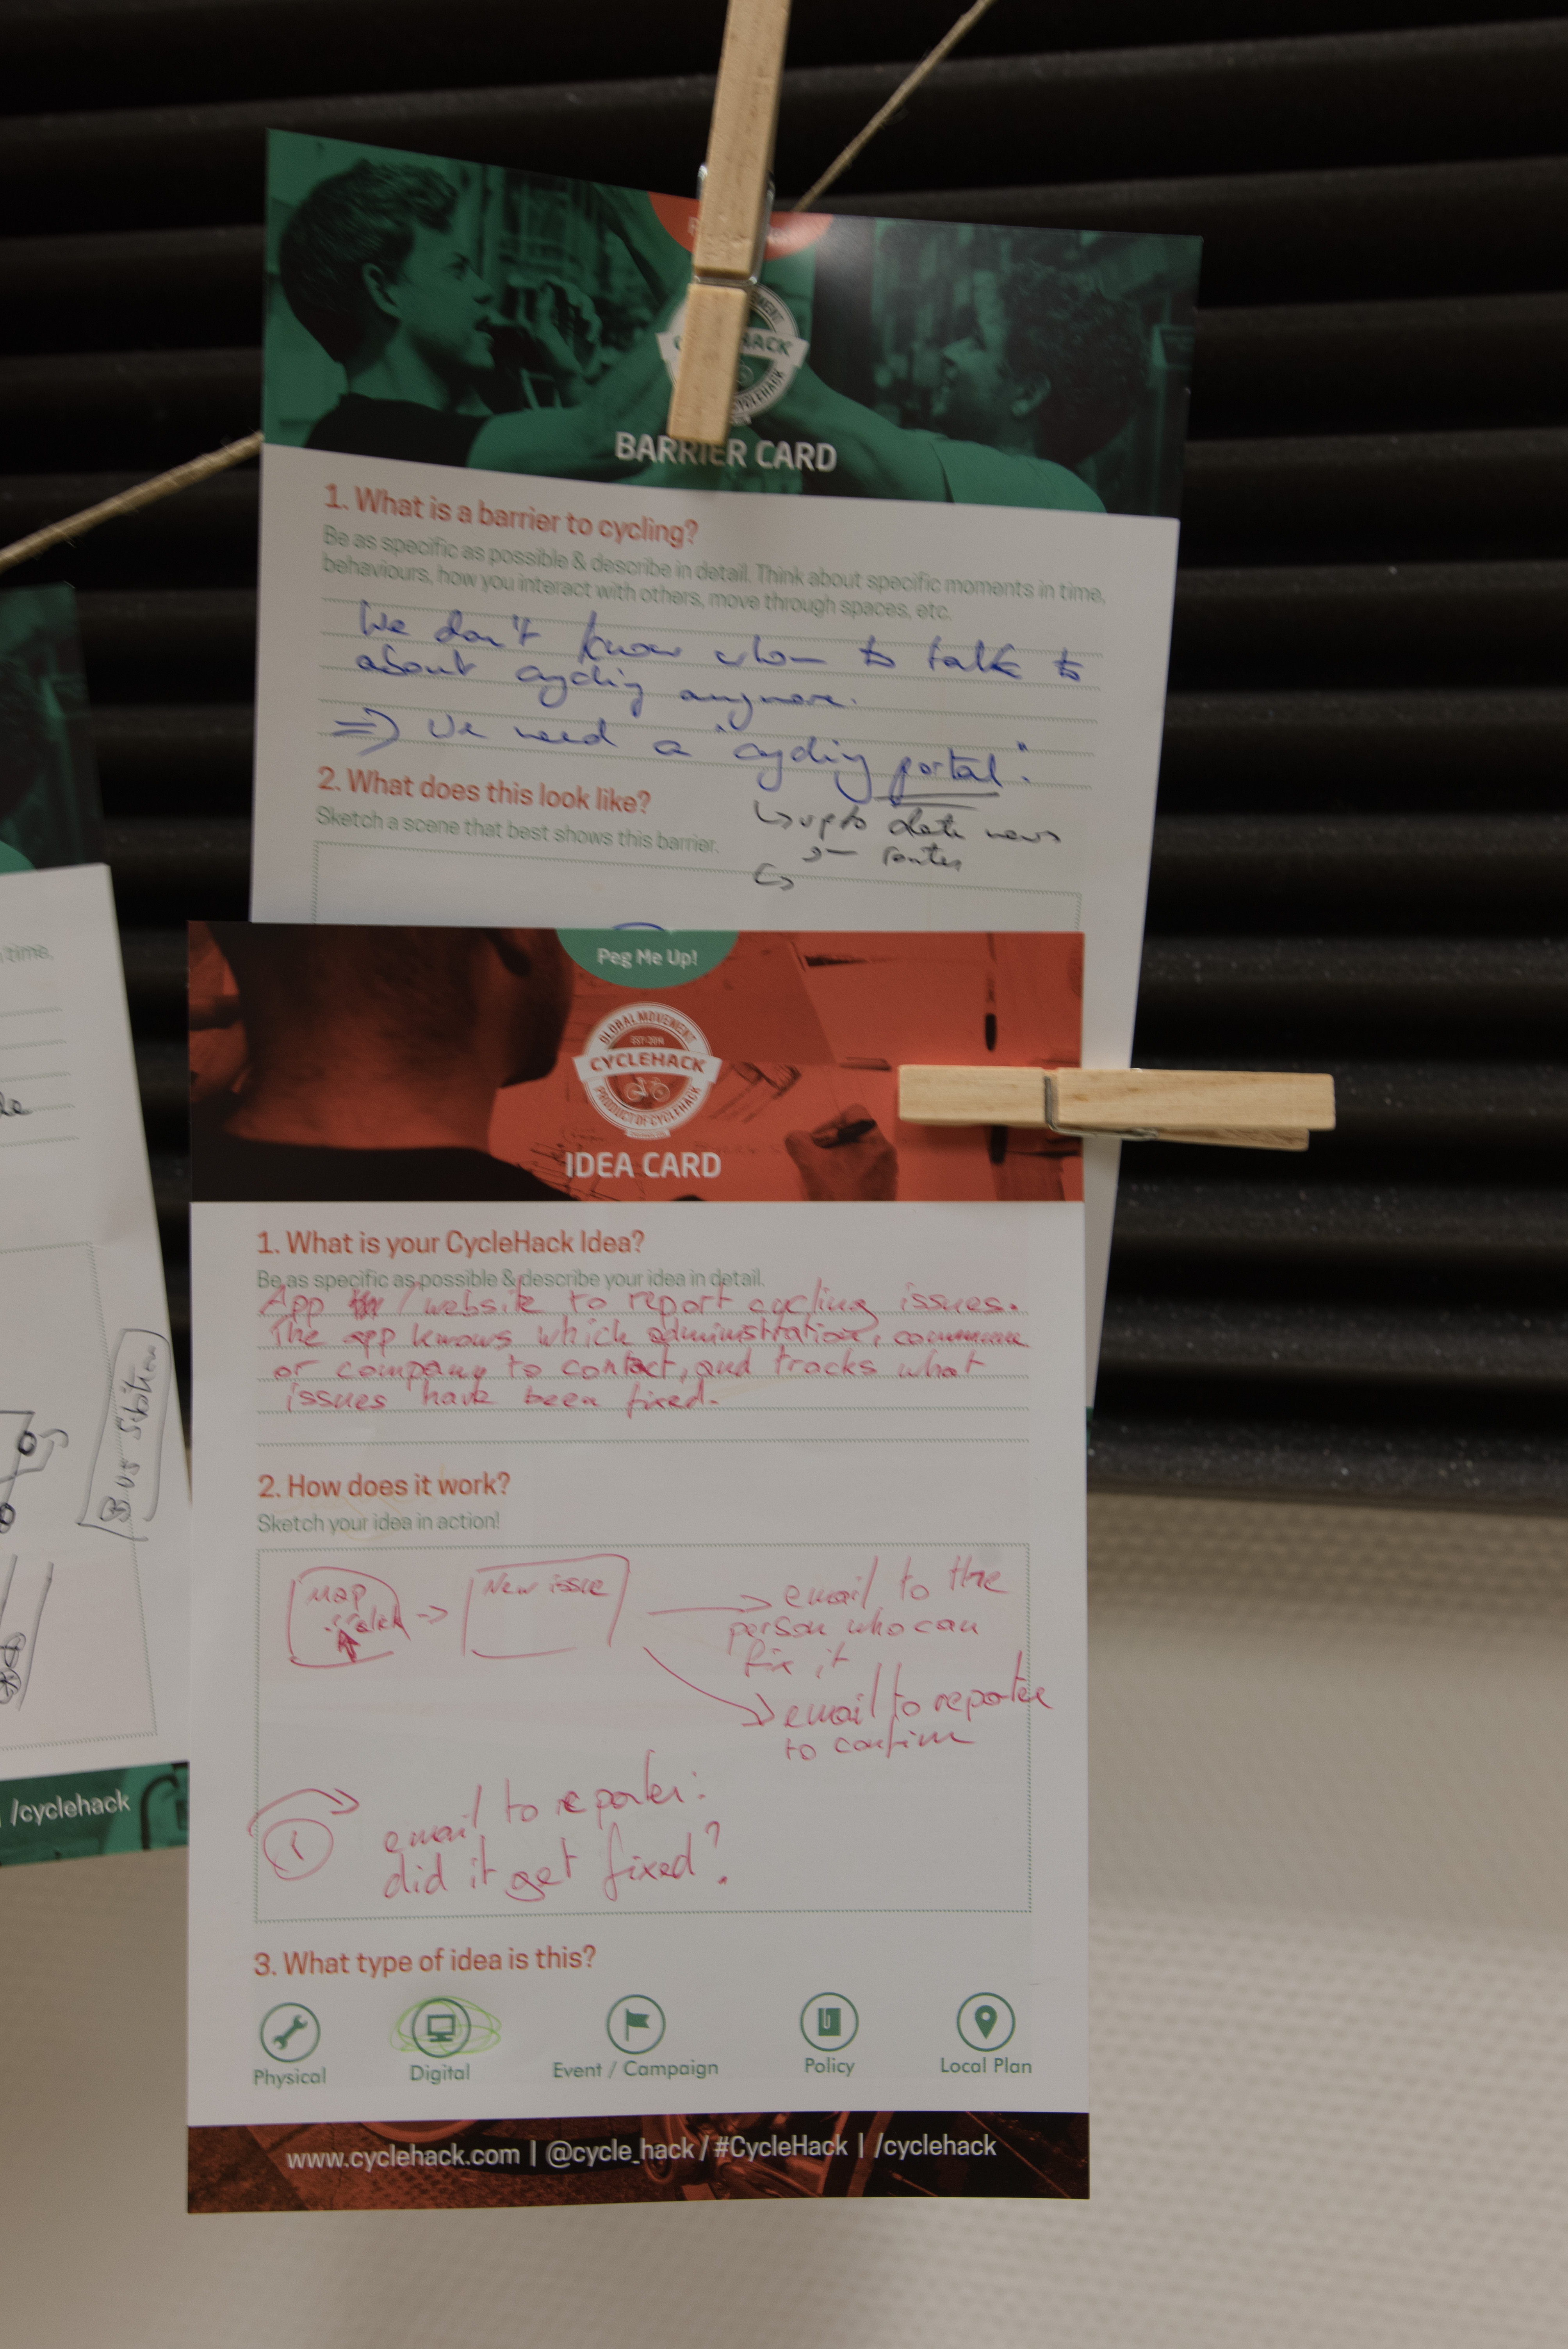 BARRIER CARD
1. What is a barrier to cycling?
Be as specific as possible & describe in detail. Think about specific moments in time,
behaviours, how you interact with others, move through spaces, etc.
We don't know whom to talk to
about cycling anymore.
=> We need a "cycling portal".
2. What does this look like?
Sketch a scene that best shows this barrier.
up to date news
routes
time,
Bus Station
/cyclehack
Peg Me Up!
GLOBAL MOVEMENT
EST-2014
CYCLEHACK
PRODUCT OF CYCLEHACK
IDEA CARD
1. What is your CycleHack Idea?
Be as specific as possible & describe your idea in detail.
App / website to report cycling issues.
The app knows which administration, commune
or company to contact, and tracks what
issues have been fixed.
2. How does it work?
Sketch your idea in action!
Map
New issue
email to the
person who can
fix it
email to reporter
to confirm
email to reporter:
did it get fixed?
3. What type of idea is this?
Physical Digital Event / Campaign Policy Local Plan
www.cyclehack.com | @cycle_hack / #CycleHack | /cyclehack